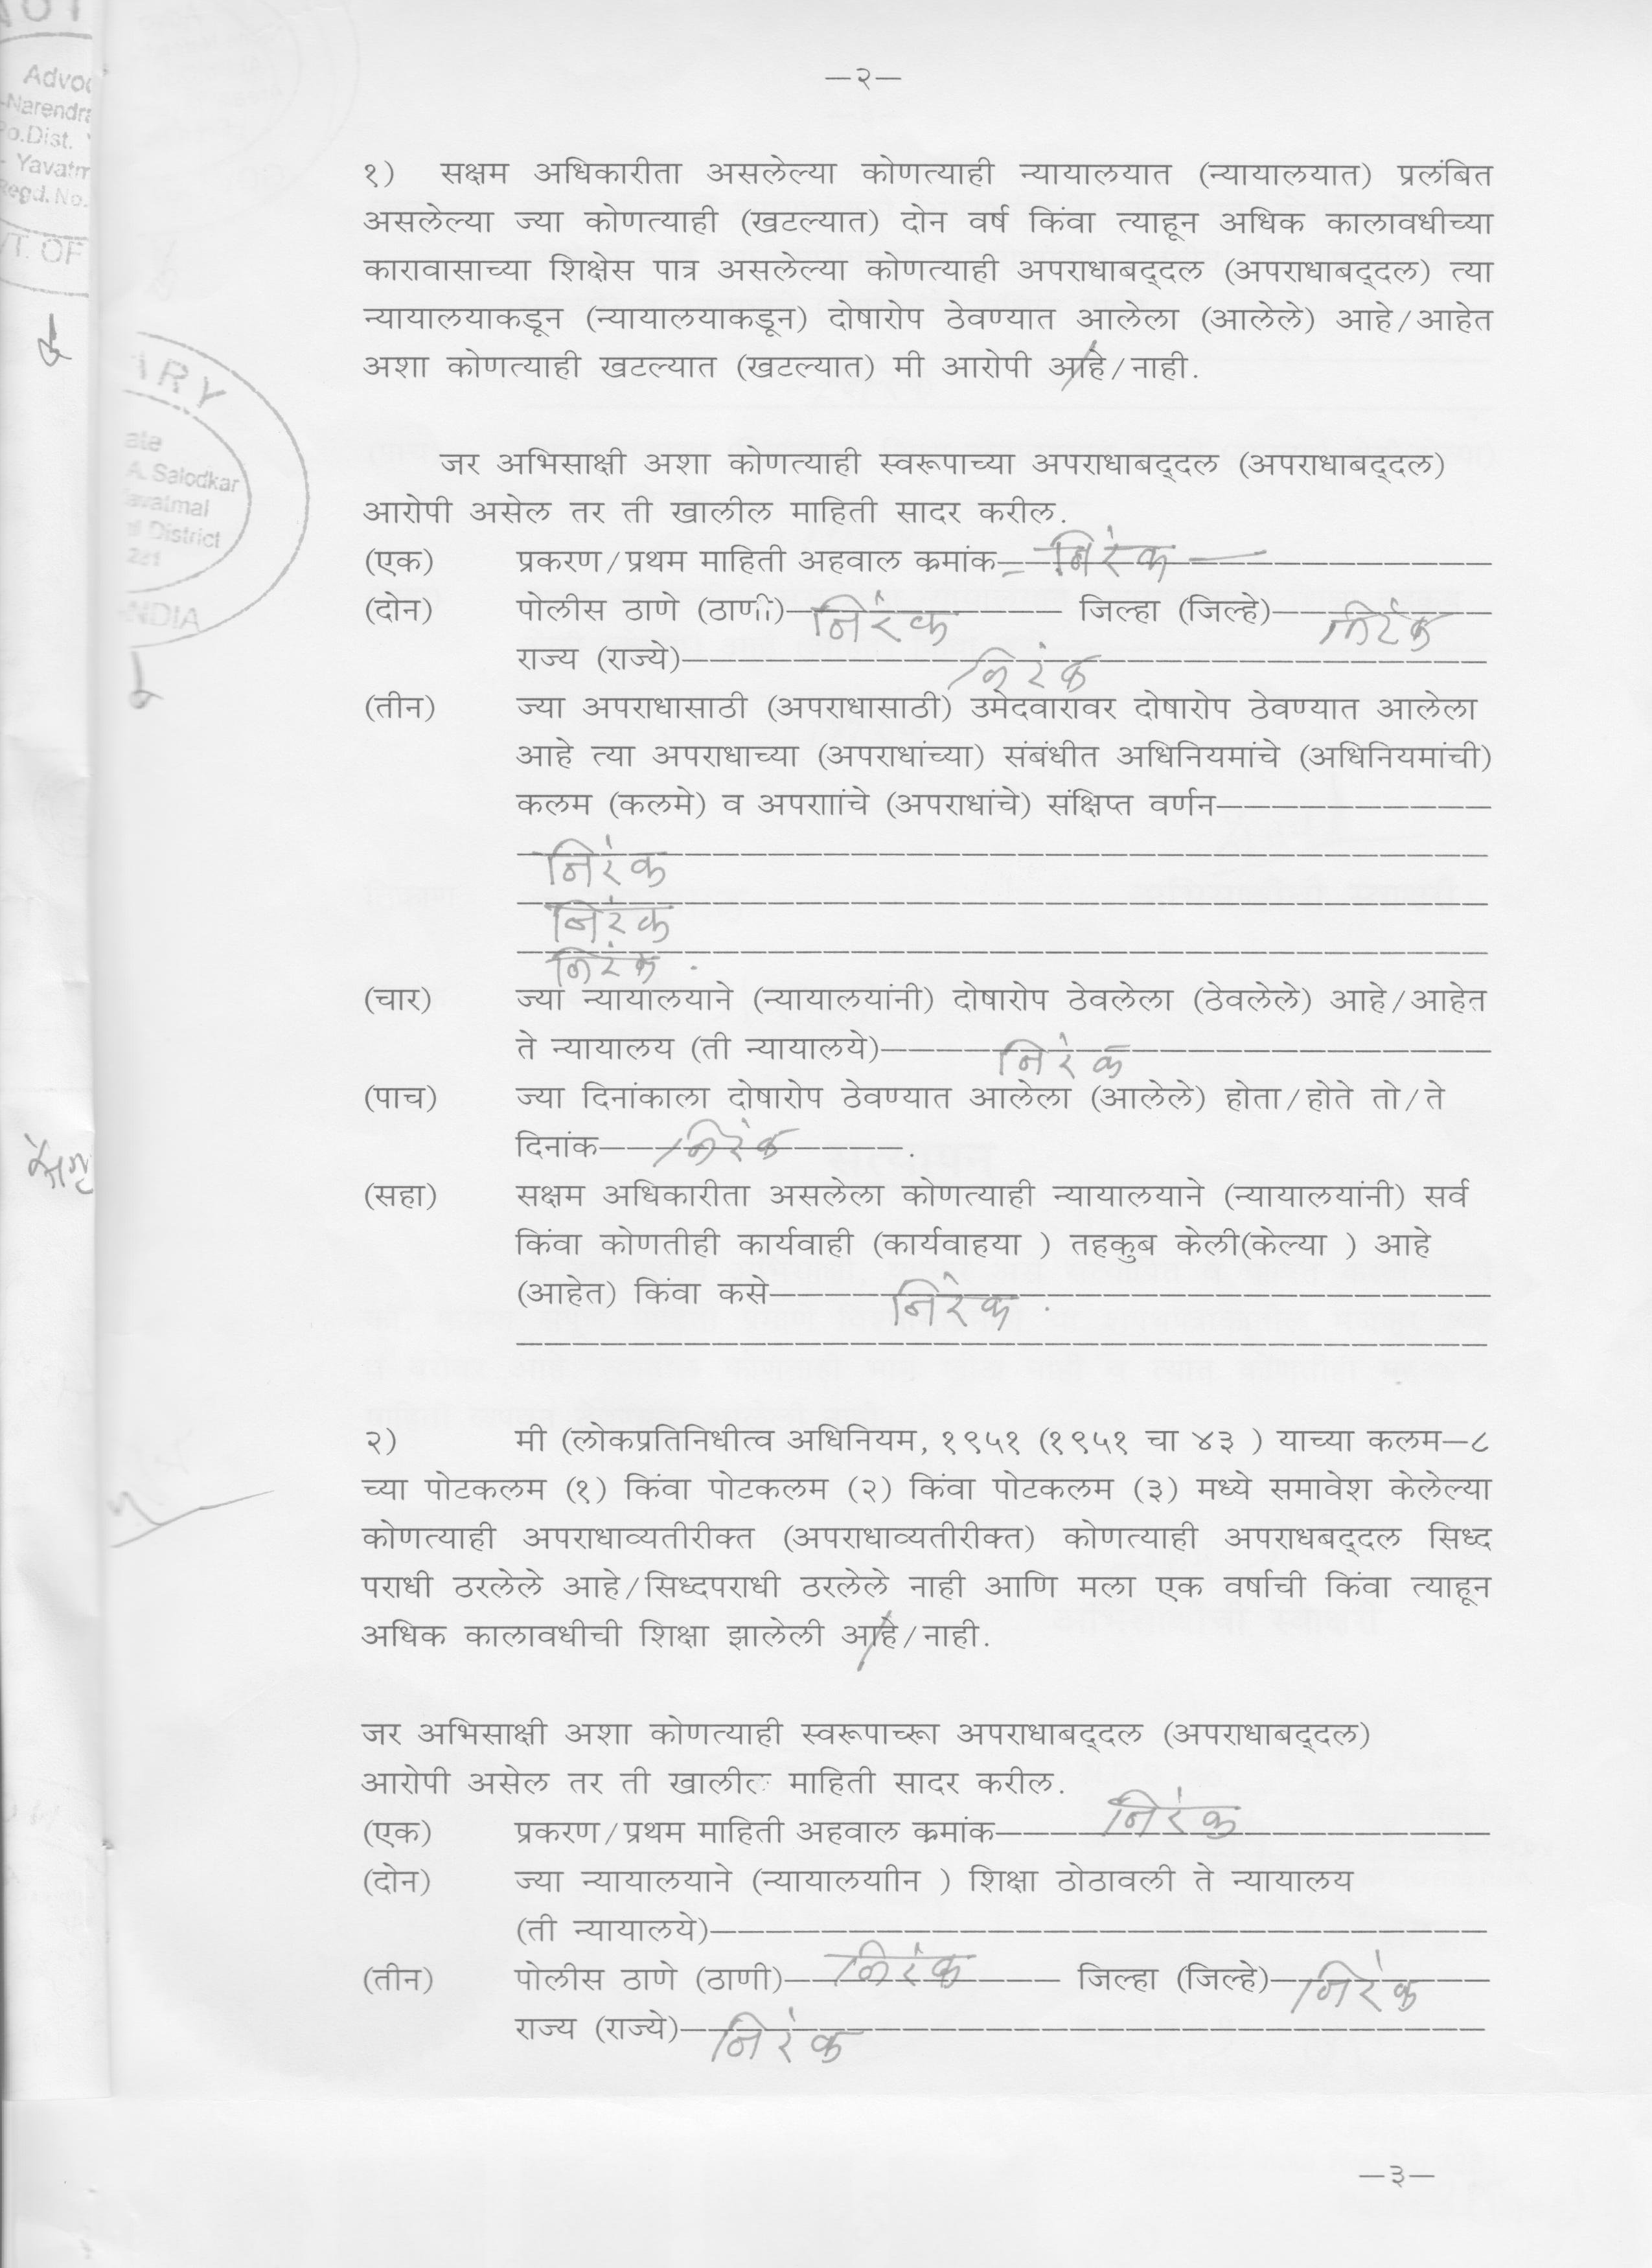 Advoc
-Narendra
Po.Dist.
- Yavatm
Regd.No.
VT. OF
ate
A. Salodkar
avatmal
District
NDIA
—२—
१) सक्षम अधिकारीता असलेल्या कोणत्याही न्यायालयात (न्यायालयात) प्रलंबित
असलेल्या ज्या कोणत्याही (खटल्यात) दोन वर्ष किंवा त्याहून अधिक कालावधीच्या
कारावासाच्या शिक्षेस पात्र असलेल्या कोणत्याही अपराधाबद्दल (अपराधाबद्दल) त्या
न्यायालयाकडून (न्यायालयाकडून) दोषारोप ठेवण्यात आलेला (आलेले) आहे/आहेत
अशा कोणत्याही खटल्यात (खटल्यात) मी आरोपी आहे/नाही.
जर अभिसाक्षी अशा कोणत्याही स्वरूपाच्या अपराधाबद्दल (अपराधाबद्दल)
आरोपी असेल तर ती खालील माहिती सादर करील.
(एक) प्रकरण/प्रथम माहिती अहवाल क्रमांक— निरंक —
(दोन) पोलीस ठाणे (ठाणी)— निरंक — जिल्हा (जिल्हे)— निरंक
राज्य (राज्ये)— निरंक
(तीन) ज्या अपराधासाठी (अपराधासाठी) उमेदवारावर दोषारोप ठेवण्यात आलेला
आहे त्या अपराधाच्या (अपराधांच्या) संबंधीत अधिनियमांचे (अधिनियमांची)
कलम (कलमे) व अपराांचे (अपराधांचे) संक्षिप्त वर्णन—
निरंक
निरंक
निरंक .
(चार) ज्या न्यायालयाने (न्यायालयांनी) दोषारोप ठेवलेला (ठेवलेले) आहे/आहेत
ते न्यायालय (ती न्यायालये)— निरंक
(पाच) ज्या दिनांकाला दोषारोप ठेवण्यात आलेला (आलेले) होता/होते तो/ते
दिनांक— निरंक —.
(सहा) सक्षम अधिकारीता असलेला कोणत्याही न्यायालयाने (न्यायालयांनी) सर्व
किंवा कोणतीही कार्यवाही (कार्यवाहया ) तहकुब केली(केल्या ) आहे
(आहेत) किंवा कसे— निरंक .
२) मी (लोकप्रतिनिधीत्व अधिनियम, १९५१ (१९५१ चा ४३ ) याच्या कलम—८
च्या पोटकलम (१) किंवा पोटकलम (२) किंवा पोटकलम (३) मध्ये समावेश केलेल्या
कोणत्याही अपराधाव्यतीरीक्त (अपराधाव्यतीरीक्त) कोणत्याही अपराधबद्दल सिध्द
पराधी ठरलेले आहे/सिध्दपराधी ठरलेले नाही आणि मला एक वर्षाची किंवा त्याहून
अधिक कालावधीची शिक्षा झालेली आहे/नाही.
जर अभिसाक्षी अशा कोणत्याही स्वरूपाच्रूा अपराधाबद्दल (अपराधाबद्दल)
आरोपी असेल तर ती खालील माहिती सादर करील.
(एक) प्रकरण/प्रथम माहिती अहवाल क्रमांक— निरंक
(दोन) ज्या न्यायालयाने (न्यायालयाीन ) शिक्षा ठोठावली ते न्यायालय
(ती न्यायालये)—
(तीन) पोलीस ठाणे (ठाणी)— निरंक — जिल्हा (जिल्हे)— निरंक
राज्य (राज्ये)— निरंक
—३—